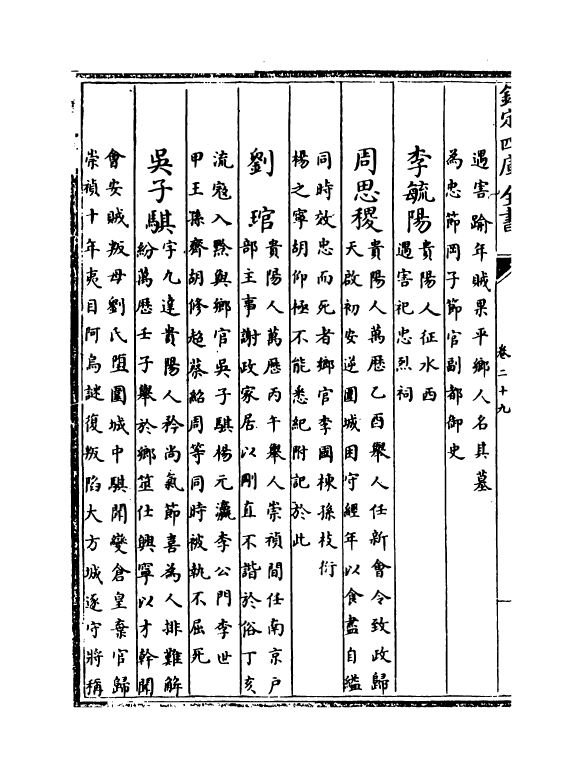 欽定四庫全書
卷二十九
遇害踰年賊果平鄉人名其墓
為忠節岡子節官副都御史
李毓陽貴陽人征水西
遇害祀忠烈祠
周思稷貴陽人萬歷乙酉舉人任新會令致政歸
天啟初安逆圍城困守經年以食盡自縊
同時效忠而死者鄉官李國棟孫枝衍
楊之寧胡仰極不能悉紀附記於此
劉琯貴陽人萬歷丙午舉人崇禎間任南京戶
部主事謝政家居以剛直不諧於俗丁亥
流寇入黔與鄉官吳子騏楊元瀛李公門李世
甲王孫齊胡修趂蔡紹周等同時被執不屈死
吳子騏字九逵貴陽人矜尚氣節喜為人排難解
紛萬歷壬子舉於鄉筮仕興寧以才幹聞
會安賊叛母劉氏墮圍城中騏聞變倉皇棄官歸
崇禎十年夷目阿烏謎復叛陷大方城逐守將稱